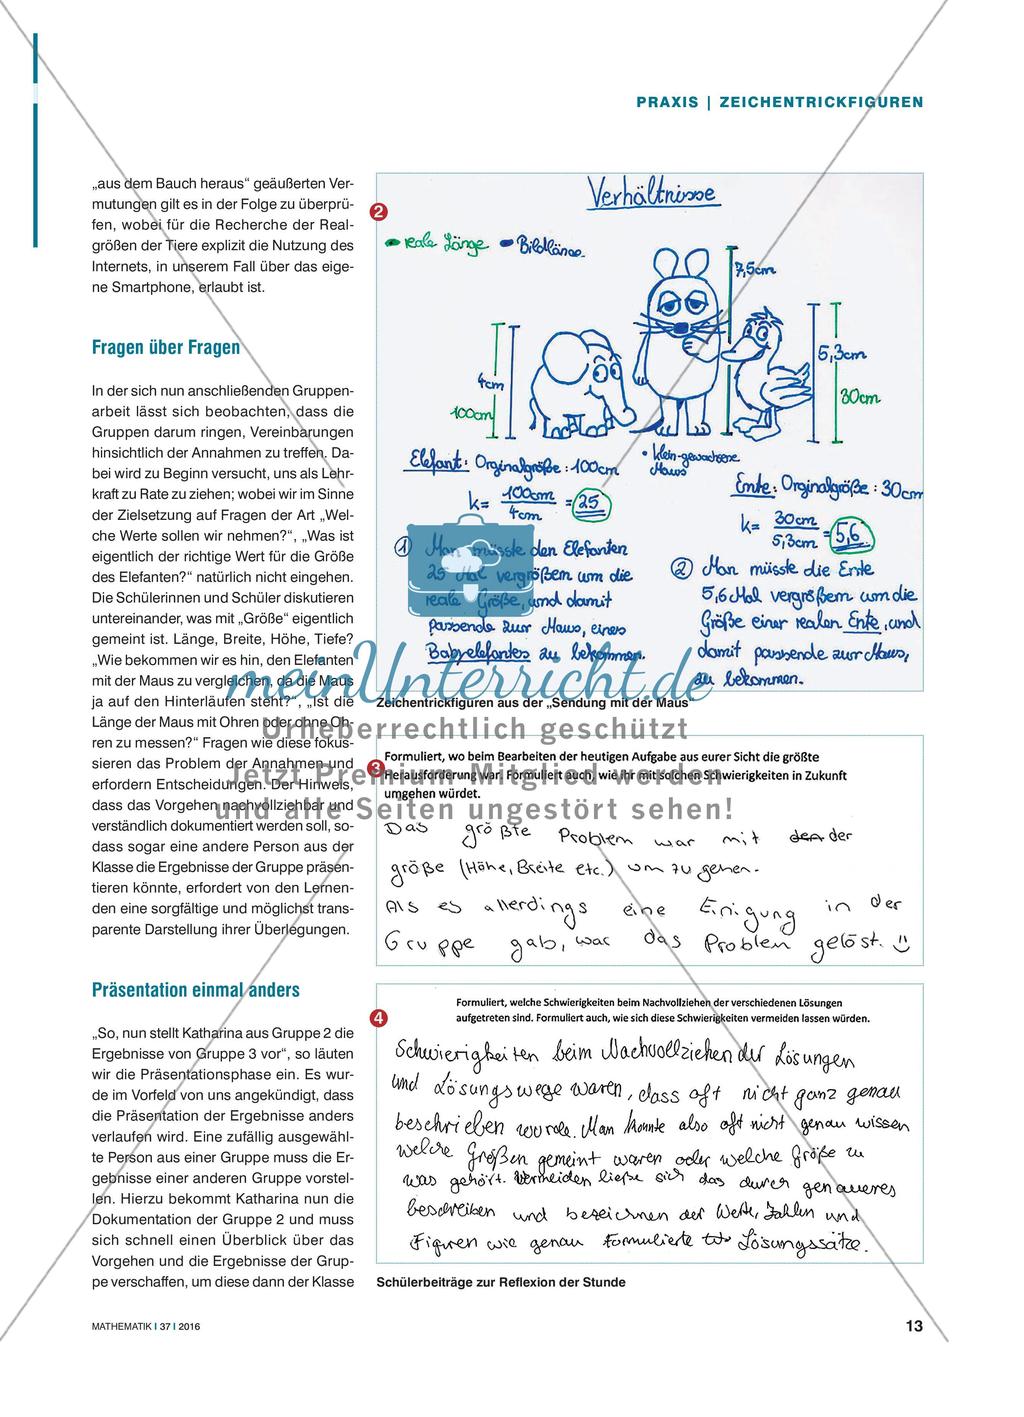 PRAXIS | ZEICHENTRICKFIGUREN
„aus dem Bauch heraus“ geäußerten Ver-
mutungen gilt es in der Folge zu überprü-
fen, wobei für die Recherche der Real-
größen der Tiere explizit die Nutzung des
Internets, in unserem Fall über das eige-
ne Smartphone, erlaubt ist.
Fragen über Fragen
In der sich nun anschließenden Gruppen-
arbeit lässt sich beobachten, dass die
Gruppen darum ringen, Vereinbarungen
hinsichtlich der Annahmen zu treffen. Da-
bei wird zu Beginn versucht, uns als Lehr-
kraft zu Rate zu ziehen; wobei wir im Sinne
der Zielsetzung auf Fragen der Art „Wel-
che Werte sollen wir nehmen?“, „Was ist
eigentlich der richtige Wert für die Größe
des Elefanten?“ natürlich nicht eingehen.
Die Schülerinnen und Schüler diskutieren
untereinander, was mit „Größe“ eigentlich
gemeint ist. Länge, Breite, Höhe, Tiefe?
„Wie bekommen wir es hin, den Elefanten
mit der Maus zu vergleichen, da die Maus
ja auf den Hinterläufen steht?“, „Ist die
Länge der Maus mit Ohren oder ohne Oh-
ren zu messen?“ Fragen wie diese fokus-
sieren das Problem der Annahmen und
erfordern Entscheidungen. Der Hinweis,
dass das Vorgehen nachvollziehbar und
verständlich dokumentiert werden soll, so-
dass sogar eine andere Person aus der
Klasse die Ergebnisse der Gruppe präsen-
tieren könnte, erfordert von den Lernen-
den eine sorgfältige und möglichst trans-
parente Darstellung ihrer Überlegungen.
Präsentation einmal anders
„So, nun stellt Katharina aus Gruppe 2 die
Ergebnisse von Gruppe 3 vor“, so läuten
wir die Präsentationsphase ein. Es wur-
de im Vorfeld von uns angekündigt, dass
die Präsentation der Ergebnisse anders
verlaufen wird. Eine zufällig ausgewähl-
te Person aus einer Gruppe muss die Er-
gebnisse einer anderen Gruppe vorstel-
len. Hierzu bekommt Katharina nun die
Dokumentation der Gruppe 2 und muss
sich schnell einen Überblick über das
Vorgehen und die Ergebnisse der Grup-
pe verschaffen, um diese dann der Klasse
2
Verhältnisse
reale Länge
Bildlänge
7,5cm
4cm
100cm
5,3cm
30cm
klein-gewachsene
Maus
Elefant: Orginalgröße: 100cm
k= 100cm / 4cm = 25
① Man müsste den Elefanten
25 Mal vergrößern um die
reale Größe, und damit
passende zur Maus, eines
Babyelefantes zu bekommen.
Ente: Orginalgröße: 30cm
k= 30cm / 5,3cm = 5,6
② Man müsste die Ente
5,6 Mal vergrößern um die
Größe einer realen Ente, und
damit passende zur Maus,
zu bekommen.
Zeichentrickfiguren aus der „Sendung mit der Maus“
3
Formuliert, wo beim Bearbeiten der heutigen Aufgabe aus eurer Sicht die größte
Herausforderung war. Formuliert auch, wie ihr mit solchen Schwierigkeiten in Zukunft
umgehen würdet.
Das größte Problem war mit der
größe (Höhe, Breite etc.) um zu gehen.
Als es allerdings eine Einigung in der
Gruppe gab, war das Problem gelöst.
4
Formuliert, welche Schwierigkeiten beim Nachvollziehen der verschiedenen Lösungen
aufgetreten sind. Formuliert auch, wie sich diese Schwierigkeiten vermeiden lassen würden.
Schwierigkeiten beim Nachvollziehen der Lösungen
und Lösungswege waren, dass oft nicht ganz genau
beschrieben wurde. Man konnte also oft nicht genau wissen
welche Größen gemeint waren oder welche Größe zu
was gehört. Vermeiden ließe sich das durch genaueres
beschreiben und bezeichnen der Werte, Zahlen und
Figuren wie genau formulierte Lösungssätze.
Schülerbeiträge zur Reflexion der Stunde
meinUnterricht.de
Urheberrechtlich geschützt
Jetzt Premium-Mitglied werden
und alle Seiten ungestört sehen!
MATHEMATIK | 37 | 2016
13